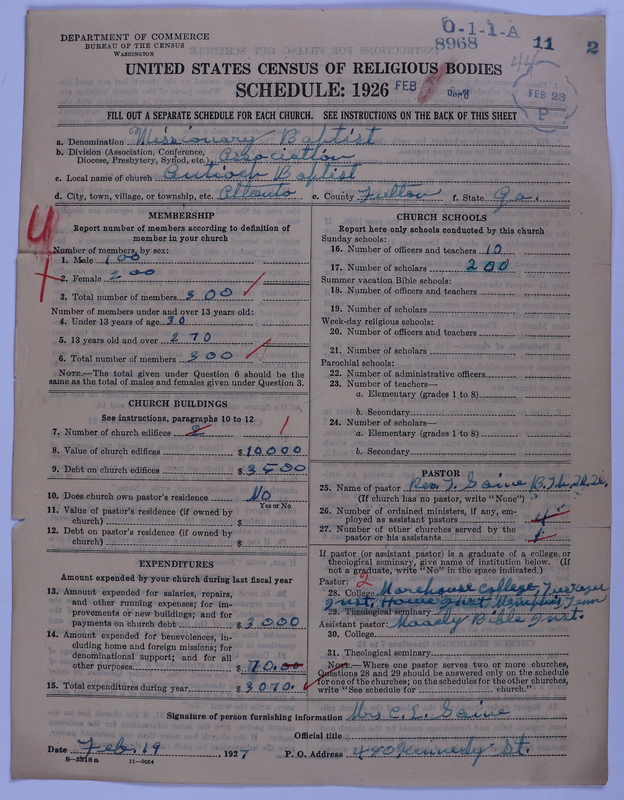 DEPARTMENT OF COMMERCE
BUREAU OF THE CENSUS
WASHINGTON
O-1-1-A
8968
11 2
44
UNITED STATES CENSUS OF RELIGIOUS BODIES
SCHEDULE: 1926
FEB
Rec'd
FEB 23
P
FILL OUT A SEPARATE SCHEDULE FOR EACH CHURCH. SEE INSTRUCTIONS ON THE BACK OF THIS SHEET
a. Denomination Missionary Baptist
b. Division (Association, Conference, Diocese, Presbytery, Synod, etc.) Association
c. Local name of church Antioch Baptist
d. City, town, village, or township, etc. Atlanta e. County Fulton f. State Ga.
MEMBERSHIP
Report number of members according to definition of
member in your church
Number of members, by sex:
1. Male 100
2. Female 200
3. Total number of members 300
Number of members under and over 13 years old:
4. Under 13 years of age 30
5. 13 years old and over 270
6. Total number of members 300
NOTE.—The total given under Question 6 should be
same as the total of males and females given under Question 3.
CHURCH BUILDINGS
See instructions, paragraphs 10 to 12
7. Number of church edifices 2 1
8. Value of church edifices $10000
9. Debt on church edifices $3500
10. Does church own pastor's residence No
Yes or No
11. Value of pastor's residence (if owned by
church) $
12. Debt on pastor's residence (if owned by
church) $
EXPENDITURES
Amount expended by your church during last fiscal year
13. Amount expended for salaries, repairs,
and other running expenses; for im-
provements or new buildings; and for
payments on church debt $3000
14. Amount expended for benevolences, in-
cluding home and foreign missions; for
denominational support; and for all
other purposes $70.00
15. Total expenditures during year $3070.
CHURCH SCHOOLS
Report here only schools conducted by this church
Sunday schools:
16. Number of officers and teachers 10
17. Number of scholars 200
Summer vacation Bible schools:
18. Number of officers and teachers
19. Number of scholars
Week-day religious schools:
20. Number of officers and teachers
21. Number of scholars
Parochial schools:
22. Number of administrative officers
23. Number of teachers—
a. Elementary (grades 1 to 8)
b. Secondary
24. Number of scholars—
a. Elementary (grades 1 to 8)
b. Secondary
PASTOR
25. Name of pastor Rev. T. Saine B.Th.
(If church has no pastor, write "None")
26. Number of ordained ministers, if any, em-
ployed as assistant pastors 4
27. Number of other churches served by the
pastor or his assistants
If pastor (or assistant pastor) is a graduate of a college or
theological seminary, give name of institution below. (If
not a graduate, write "No" in the space indicated.)
Pastor: 2
28. College Morehouse College,
Inst. Howe Inst. Memphis, Tenn
29. Theological seminary Moody Bible Inst.
Assistant pastor:
30. College
31. Theological seminary
NOTE.—Where one pastor serves two or more churches,
Questions 28 and 29 should be answered only on the schedule
for one of the churches; on the schedules for the other churches,
write "See schedule for church."
Signature of person furnishing information Mrs C. L. Saine
Official title
Date Feb. 19, 1927 P. O. Address 440 Kennedy St.
8—5318 a 11—9054